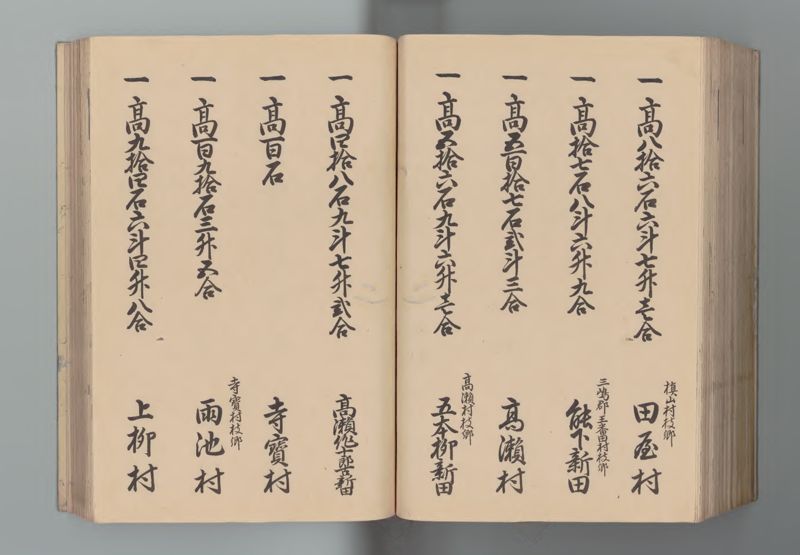 一 高八拾六石六斗七升壱合
槙山村枝郷
田屋村
一 高拾七石八斗六升九合
三嶋郡王番田村枝郷
能下新田
一 高五百拾七石弐斗三合
高瀬村
一 高五拾六石九斗六升壱合
高瀬村枝郷
五本柳新田
一 高四拾八石九斗七升弐合
高瀬作十興新田
一 高百石
寺寳村
一 高百九拾石三升五合
寺寳村枝郷
雨池村
一 高九拾四石六斗四升八合
上柳村